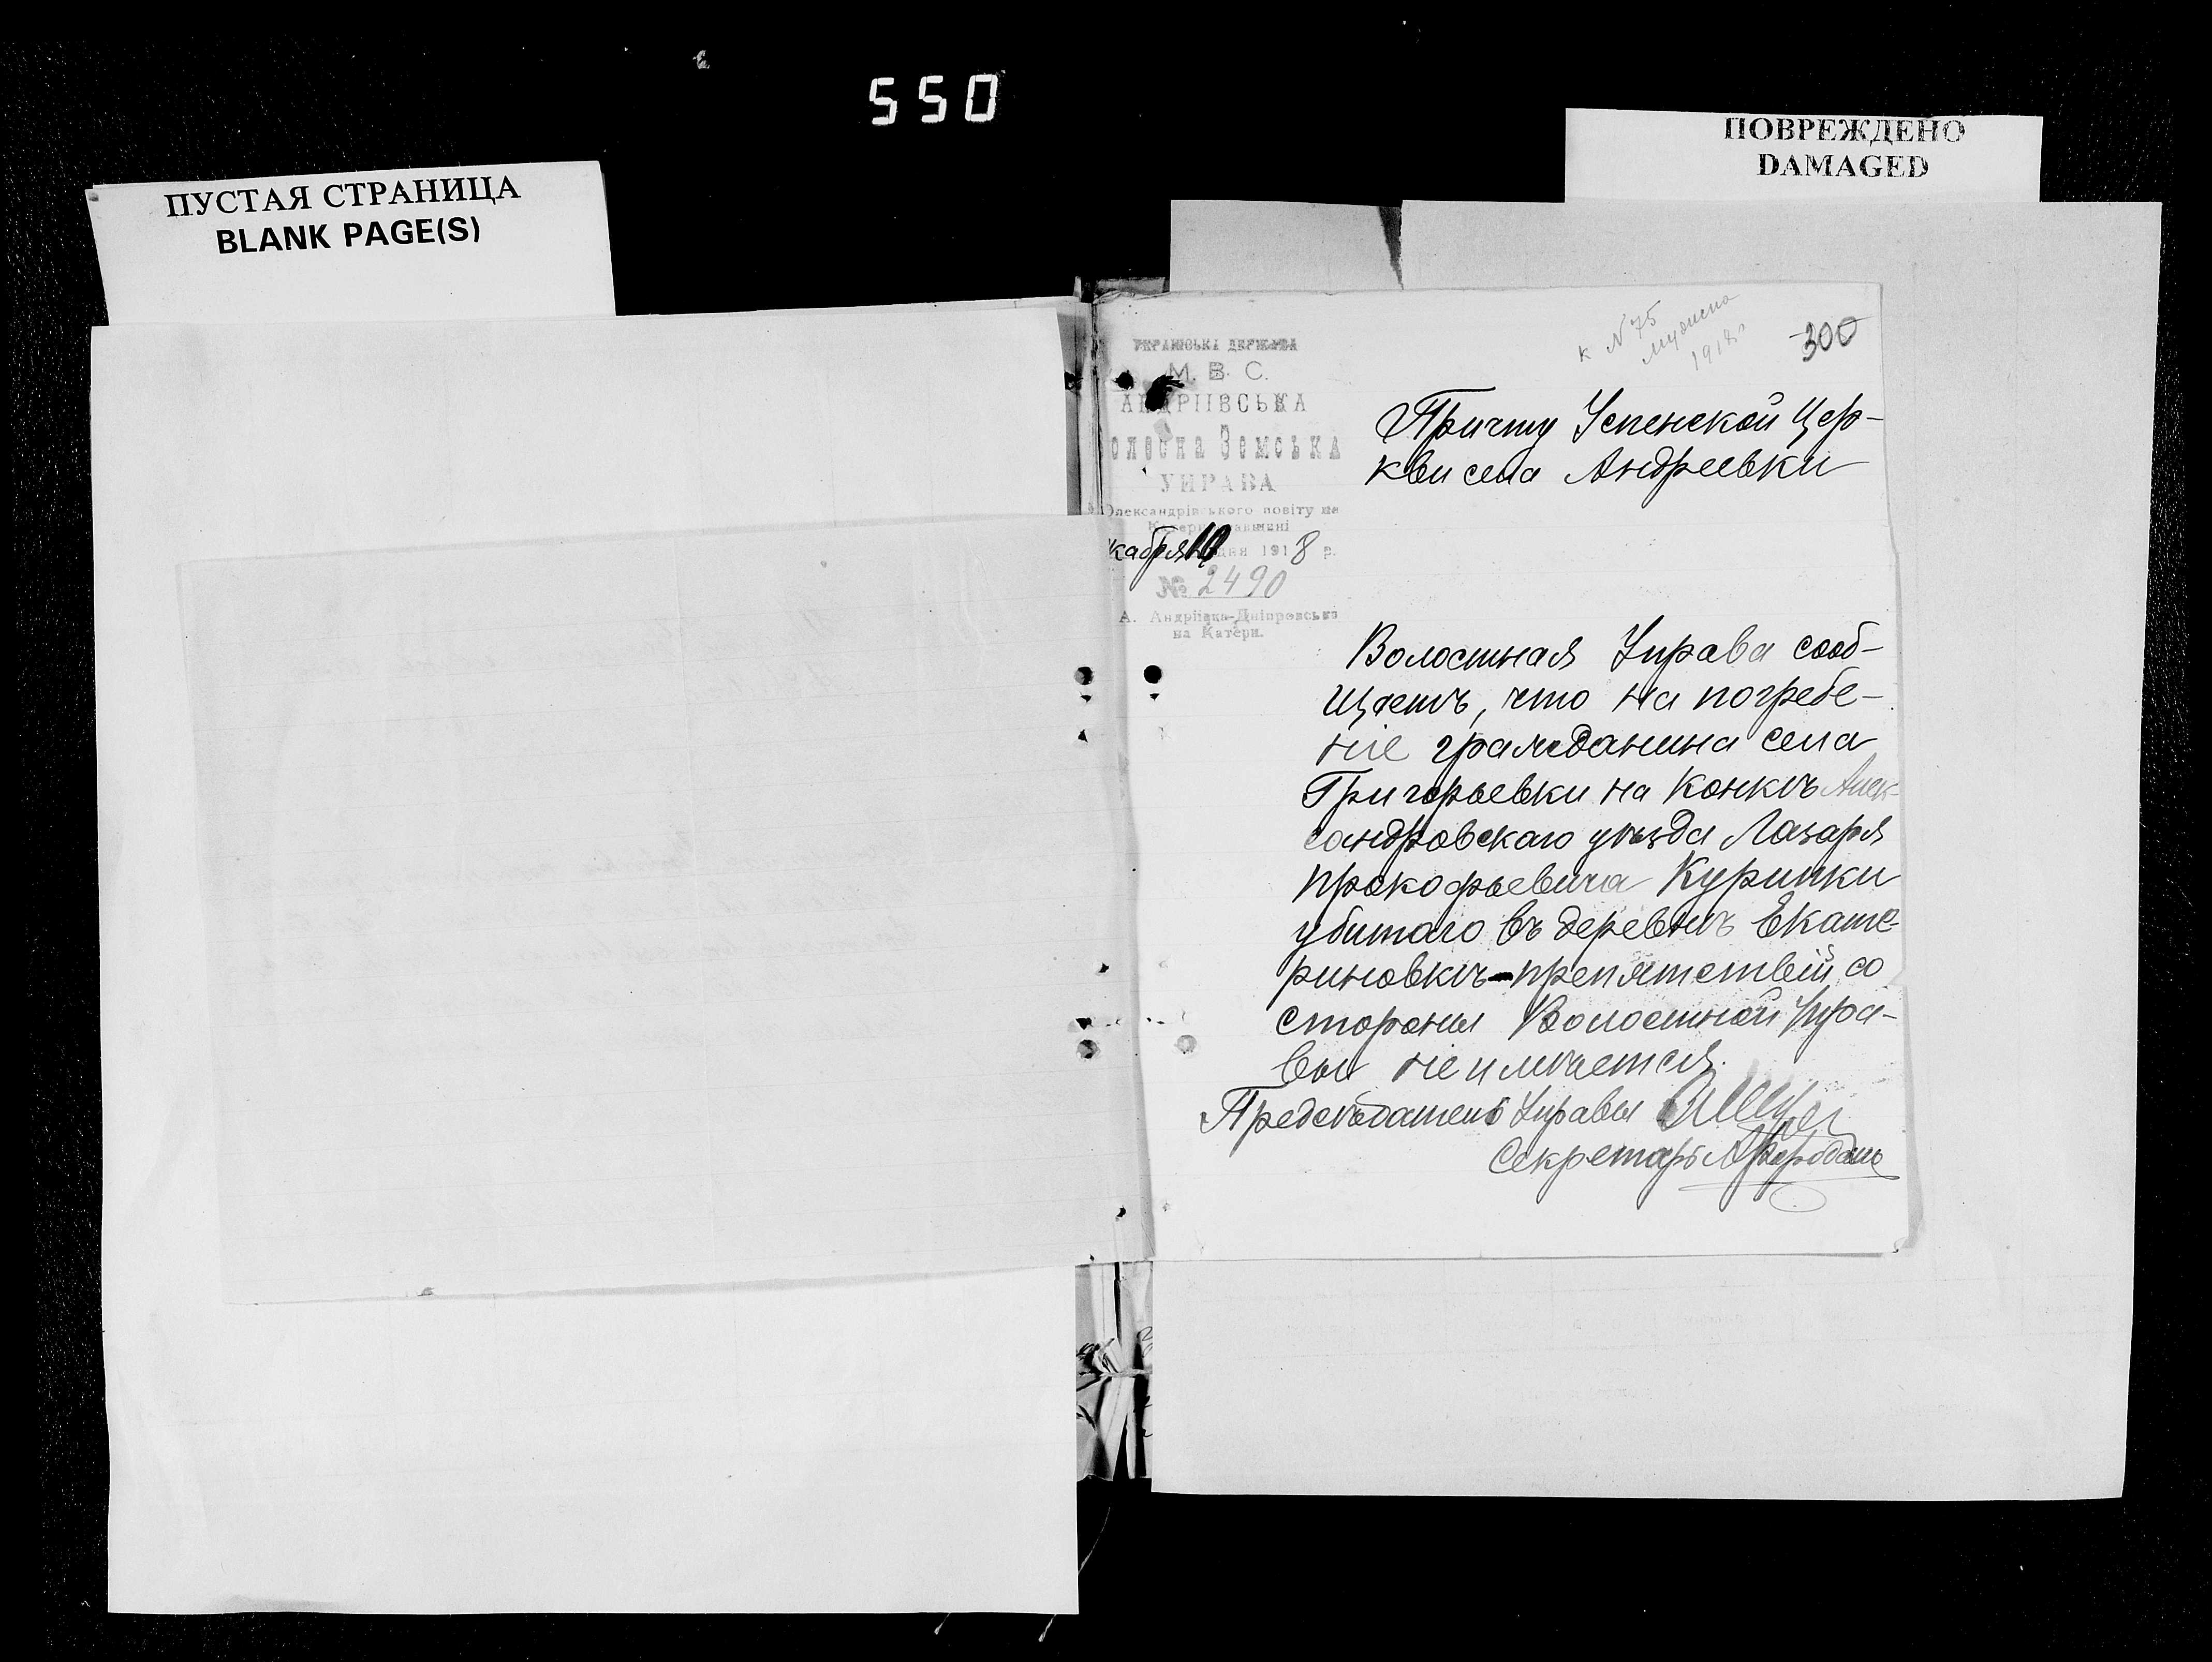 550
ПУСТАЯ СТРАНИЦА
BLANK PAGE(S)
ПОВРЕЖДЕНО
DAMAGED
к N 75
1918 г
300
УКРАІНСЬКА ДЕРЖАВА
М. В. С.
АНДРІІВСЬКА
олосна Земська
УПРАВА
Олександрівського повіту на
Катеринославщині
кабря 10 дня 1918 р.
№ 2490
А. Андріівка-Дніпровська
на Катери.
Причту Успенской Цер-
кви села Андреевки
Волостная Управа сооб-
щаетъ, что на погребе-
ніе гражданина села
Григорьевки на Конкѣ Алек-
сандровскаго уѣзда Лазаря
Прокофьевича Курипки
убитаго въ деревнѣ Екате-
риновкѣ - препятствій со
стороны Волостной Упра-
вы не имѣется.
Предсѣдатель Управы
Секретарь